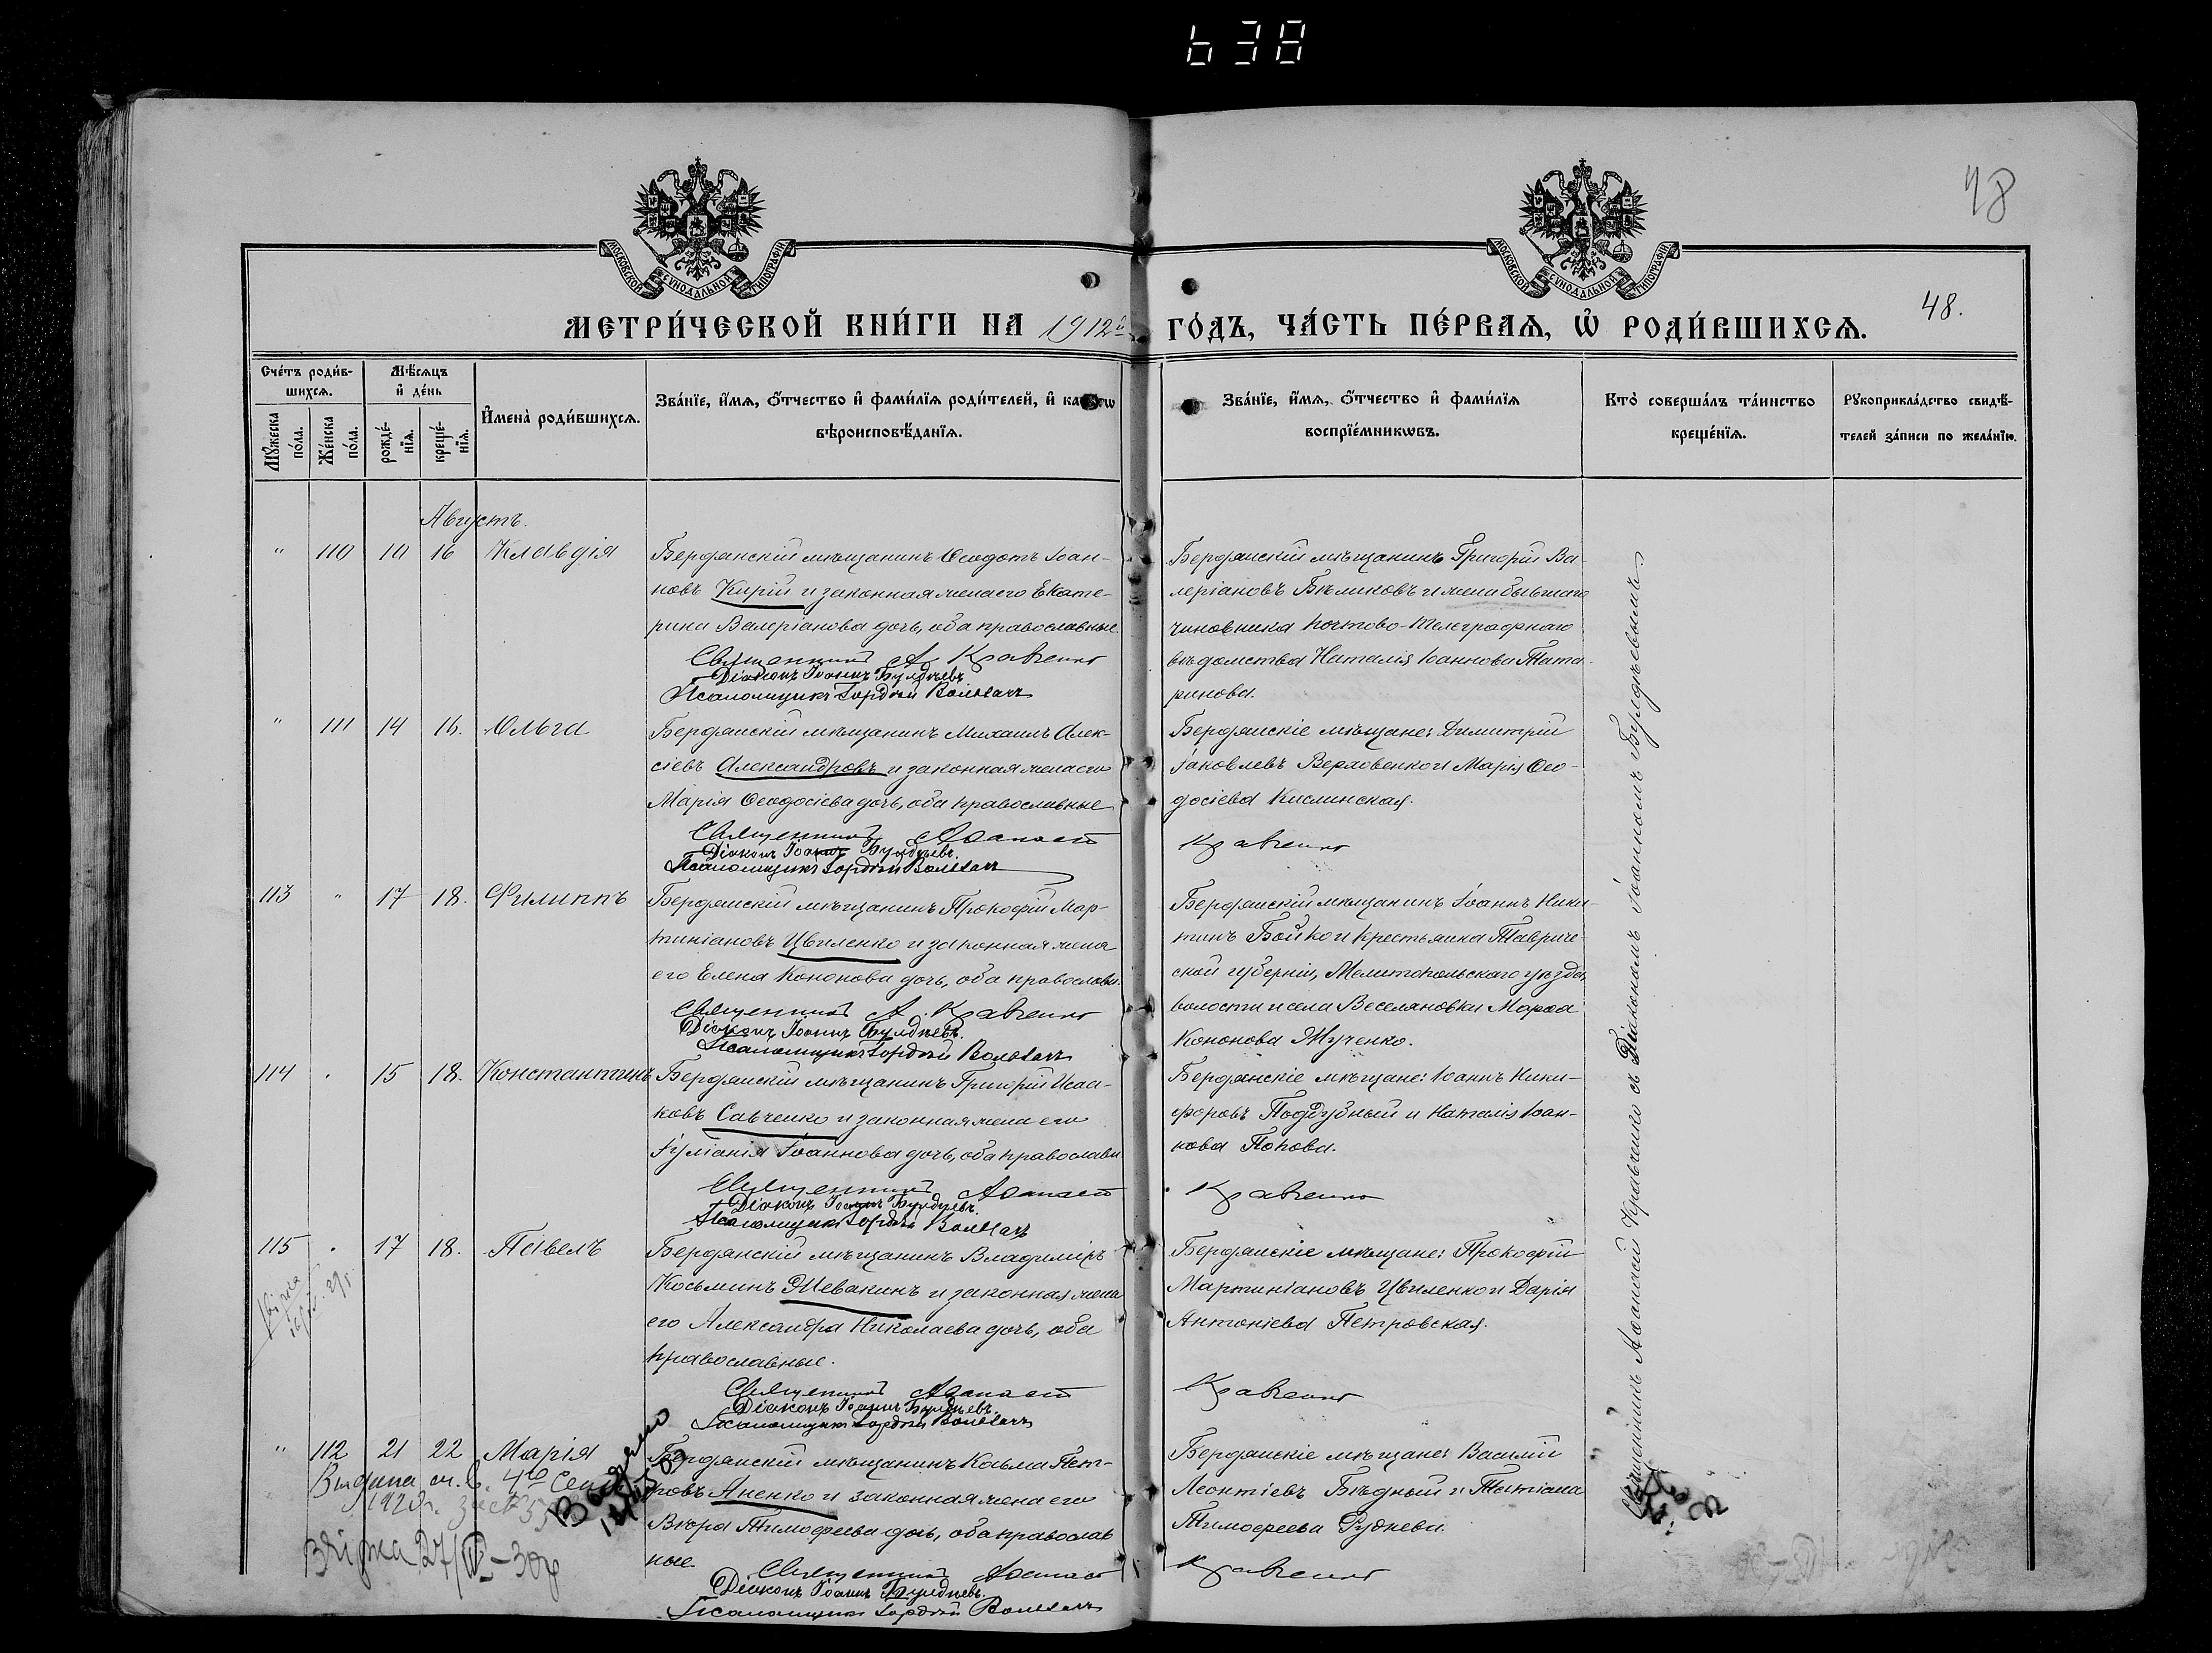 638
48
МОСКОВСКОЙ СѴНОДАЛЬНОЙ ТИПОГРАФІИ
МОСКОВСКОЙ СѴНОДАЛЬНОЙ ТИПОГРАФІИ
МЕТРИ́ЧЕСКОЙ КНИ́ГИ НА 1912й ГО́ДЪ, ЧА́СТЬ ПЕ́РВАѦ, Ѽ РОДИ́ВШИХСѦ. 48.
Сче́тъ роди́в-
шихсѧ.
Мꙋ́жеска по́ла.
Же́нска по́ла.
Мѣ́сѧцъ
и҆ де́нь
рожде́-нїѧ.
креще́-нїѧ.
И҆мена̀ роди́вшихсѧ.
Зва́нїе, и҆́мѧ, ѻ҆́тчество и҆ фами́лїѧ роди́телей, и҆
вѣроисповѣ́данїѧ.
Зва́нїе, и҆́мѧ, ѻ҆́тчество и҆ фами́лїѧ
воспрїе́мникѡвъ.
Кто̀ соверша́лъ та́инство
креще́нїѧ.
Рꙋкоприкла́дство свидѣ́-
телей за́писи по жела́нїю.
Августъ.
" 110 10 16 Клавдія
Бердянскій мѣщанинъ Ѳеодотъ Іоан-
новъ Кирій и законная жена его Екате-
рина Валеріанова дочь, оба православные.
Священникъ А. Кравченко
Діаконъ Іоаннъ Булдчевъ
Псаломщикъ Гордѣй
Бердянскій мѣщанинъ Григорій Ва-
леріановъ Бѣликовъ и жена бывшаго
чиновника почтово-телеграфнаго
вѣдомства Наталія Іоаннова Тата-
ринова.
" 111 14 16. Ольга
Бердянскій мѣщанинъ Михаилъ Алек-
сіевъ Александровъ и законная жена его
Марія Ѳеодосіева дочь, оба православные
Священникъ Аѳанасій Кравченко
Діаконъ Іоаннъ
Псаломщикъ Гордѣй
Бердянскіе мѣщане: Димитрій
Іаковлевъ Верховенко и Марія Ѳео-
досіева Кислинская.
113 " 17 18. Филиппъ
Бердянскій мѣщанинъ Прокофій Мар-
тиніановъ Цвиленко и законная жена
его Елена Кононова дочь, оба православн.
Священникъ А. Кравченко
Діаконъ Іоаннъ
Псаломщикъ Гордѣй
Бердянскій мѣщанинъ Іоаннъ Ники-
тинъ Бойко и крестьянка Тавриче-
ской губерніи, Мелитопольскаго уѣзда,
волости и села Веселяновки Марѳа
Кононова Жученко.
114 . 15 18. Константинъ
Бердянскій мѣщанинъ Григорій Исаа-
ковъ Савченко и законная жена его
Іуліанія Іоаннова дочь, оба православн.
Священникъ Аѳанасій Кравченко
Діаконъ Іоаннъ
Псаломщикъ Гордѣй
Бердянскіе мѣщане: Іоаннъ Ники-
форовъ Поддубный и Наталія Іоан-
нова Попова.
115 . 17 18. Павелъ
Бердянскій мѣщанинъ Владиміръ
Косьминъ Шевакинъ и законная жена
его Александра Николаева дочь, оба
православные.
Священникъ Аѳанасій Кравченко
Діаконъ Іоаннъ
Псаломщикъ Гордѣй
Бердянскіе мѣщане: Прокофій
Мартиніановъ Цвиленко и Дарія
Антоніева Петровская.
" 112 21 22 Марія
Бердянскій мѣщанинъ Косьма Пет-
ровъ Яненко и законная жена его
Вѣра Тимоѳеева дочь, оба православ-
ные.
Священникъ Аѳанасій Кравченко
Діаконъ Іоаннъ
Псаломщикъ Гордѣй
Бердянскіе мѣщане: Василій
Леонтіевъ Бѣдный и Татіана
Тимоѳеева Руднева.
Выдано
Священникъ Аѳанасій Кравченко съ Діакономъ Іоанномъ